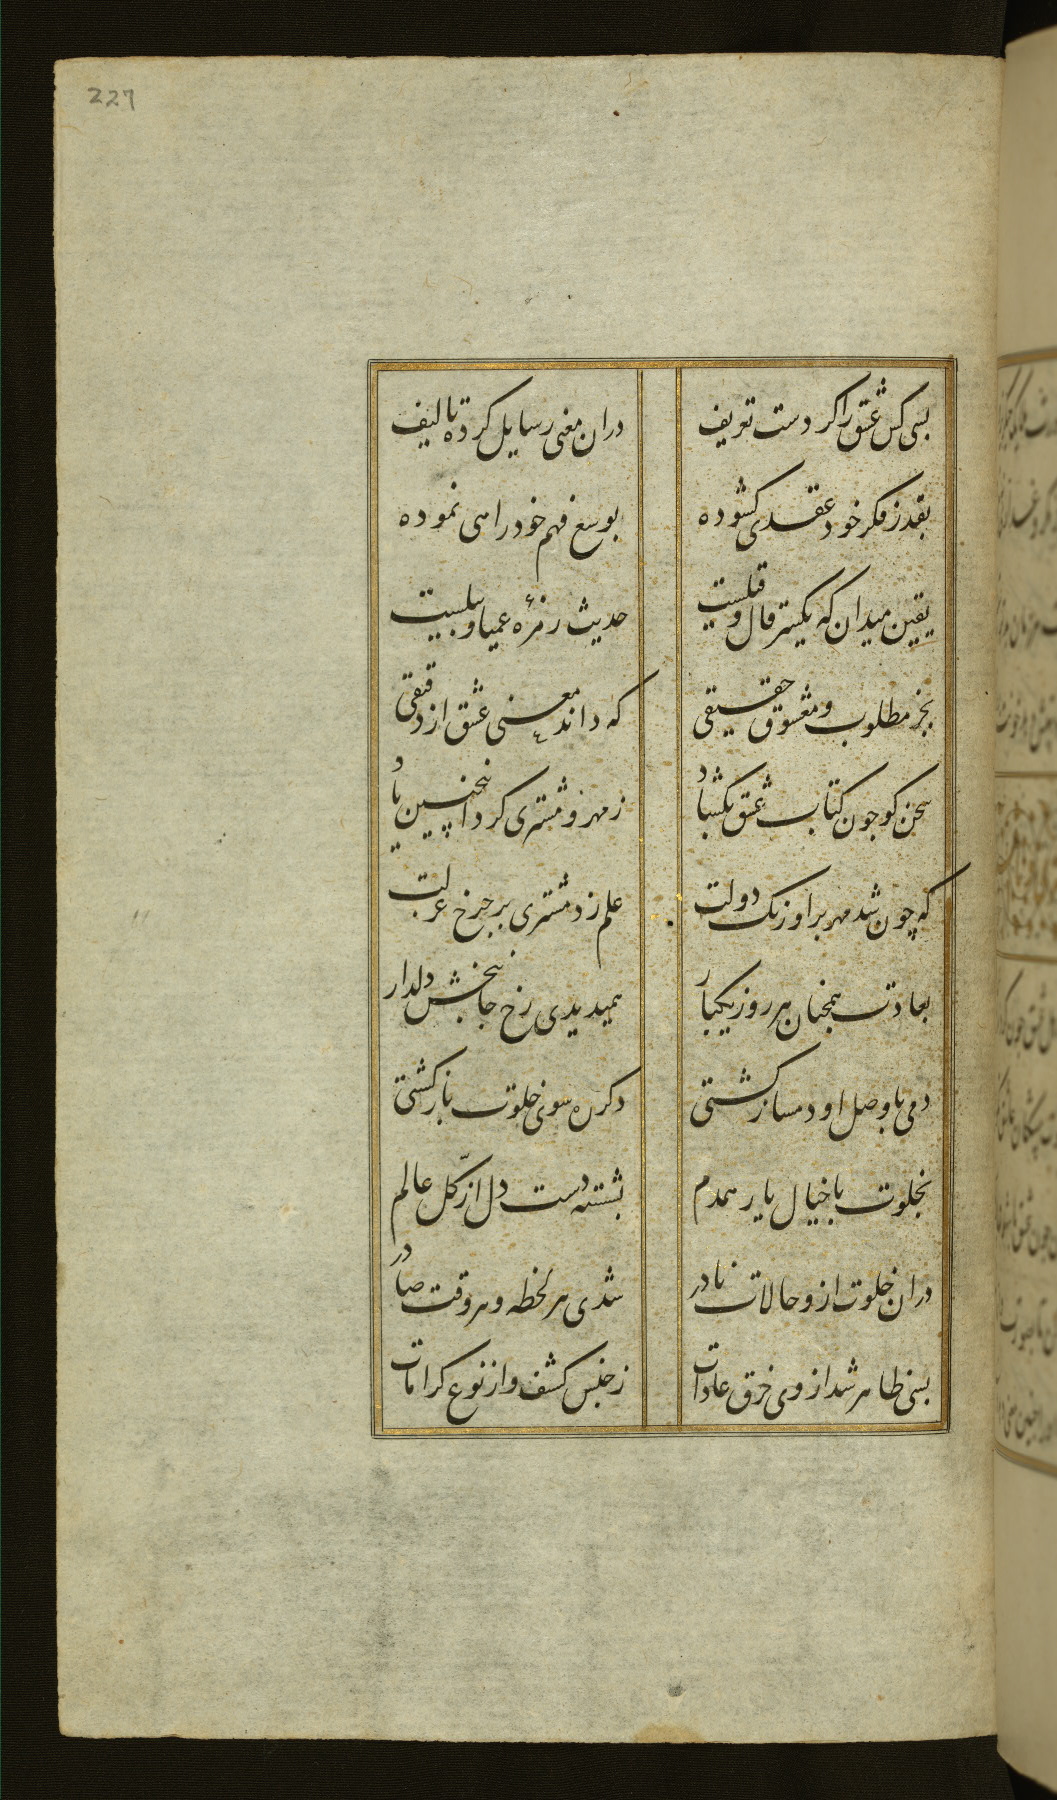 227
بسی کس عشق را کردست تعریف
دران معنی رسایل کرده تالیف
بقدر فکر خود عقدی کشوده
بوسع فهم خود راهی نموده
یقین میدان که یکسر قال و قیلست
حدیث زمرهٔ عمیا و پیلست
بجز مطلوب و معشوق حقیقی
که داند معنی عشق از دقیقی
سخن کو چون کتاب عشق بکشاد
ز مهر و مشتری کرد اینچنین یاد
که چون شد مهر بر اورنک دولت
علم زد مشتری بر چرخ عزلت
بعادت همچنان هر روز یکبار
همیدیدی رخ جانبخش دلدار
دمی با وصل او دمساز کشتی
دکر ره سوی خلوت باز کشتی
بخلوت با خیال یار همدم
بشسته دست دل از کل عالم
دران خلوت ازو حالات نادر
شدی هر لحظه و هر وقت صادر
بسی ظاهر شد از وی خرق عادات
ز جنس کشف و از نوع کرامات